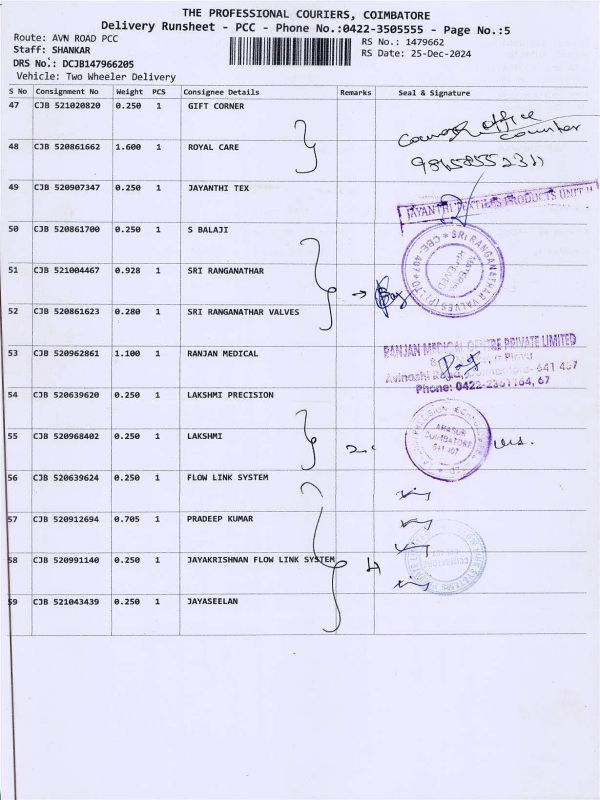 THE PROFESSIONAL COURIERS, COIMBATORE
Delivery Runsheet - PCC - Phone No.:0422-3505555 - Page No.:5
Route: AVN ROAD PCC
RS No.: 1479662
Staff: SHANKAR
RS Date: 25-Dec-2024
DRS No.: DCJB147966205
Vehicle: Two Wheeler Delivery
S No Consignment No Weight PCS Consignee Details Remarks Seal & Signature
47 CJB 521020820 0.250 1 GIFT CORNER
office counter
48 CJB 520861662 1.600 1 ROYAL CARE
49 CJB 520907347 0.250 1 JAYANTHI TEX
JAYANTHI PRODUCTS UNIT II
50 CJB 520861700 0.250 1 S BALAJI
51 CJB 521004467 0.928 1 SRI RANGANATHAR
SRI RANGANATHAR VALVES (P) LTD * CBE-407 *
MATERIAL RECEIVED
52 CJB 520861623 0.280 1 SRI RANGANATHAR VALVES
53 CJB 520962861 1.100 1 RANJAN MEDICAL
RANJAN MEDICAL CENTRE PRIVATE LIMITED
Avinashi Road, Coimbatore- 641 407
Phone: 0422-2361164, 67
54 CJB 520639620 0.250 1 LAKSHMI PRECISION
55 CJB 520968402 0.250 1 LAKSHMI
PRECISION
ARASUR
COIMBATORE
641 407
56 CJB 520639624 0.250 1 FLOW LINK SYSTEM
57 CJB 520912694 0.705 1 PRADEEP KUMAR
58 CJB 520991140 0.250 1 JAYAKRISHNAN FLOW LINK SYSTEM
4
59 CJB 521043439 0.250 1 JAYASEELAN